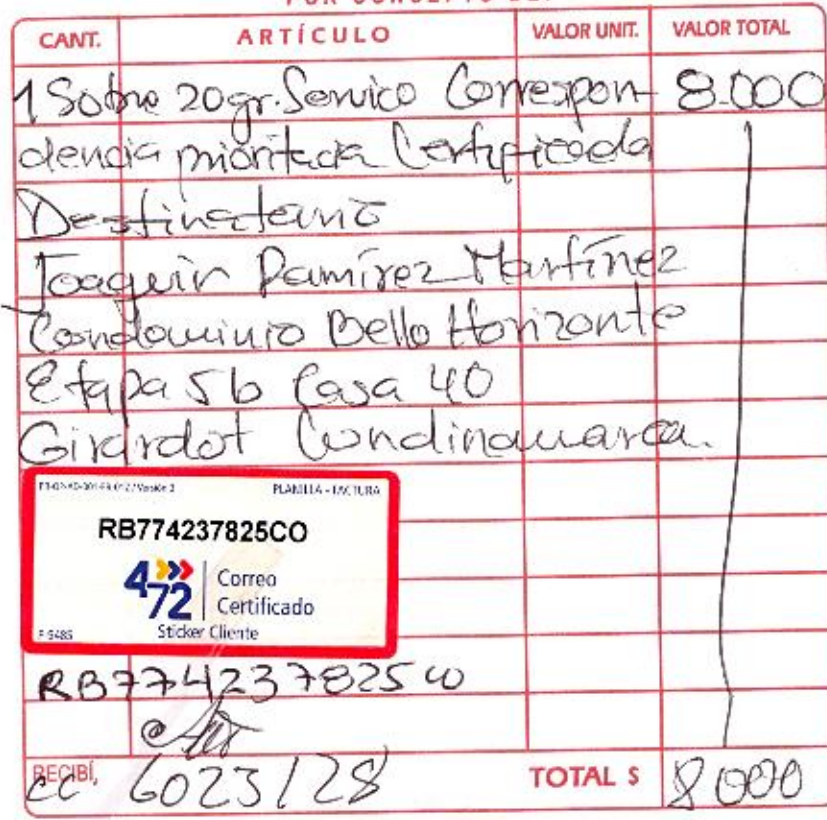 POR CONCEPTO DE:
CANT. ARTÍCULO VALOR UNIT. VALOR TOTAL
1 Sobre 20gr. Servico Correspon- 8.000
dencia prioritaria Certificada
Destinatario
Joaquin Ramírez Martínez
Condominio Bello Horizonte
Etapa 5b Casa 40
Girardot Cundinamarca.
PLANILLA - FACTURA
RB774237825CO
472 Correo
Certificado
Sticker Cliente
RB774237825CO
RECIBÍ, TOTAL $ 8000
cc 6023128